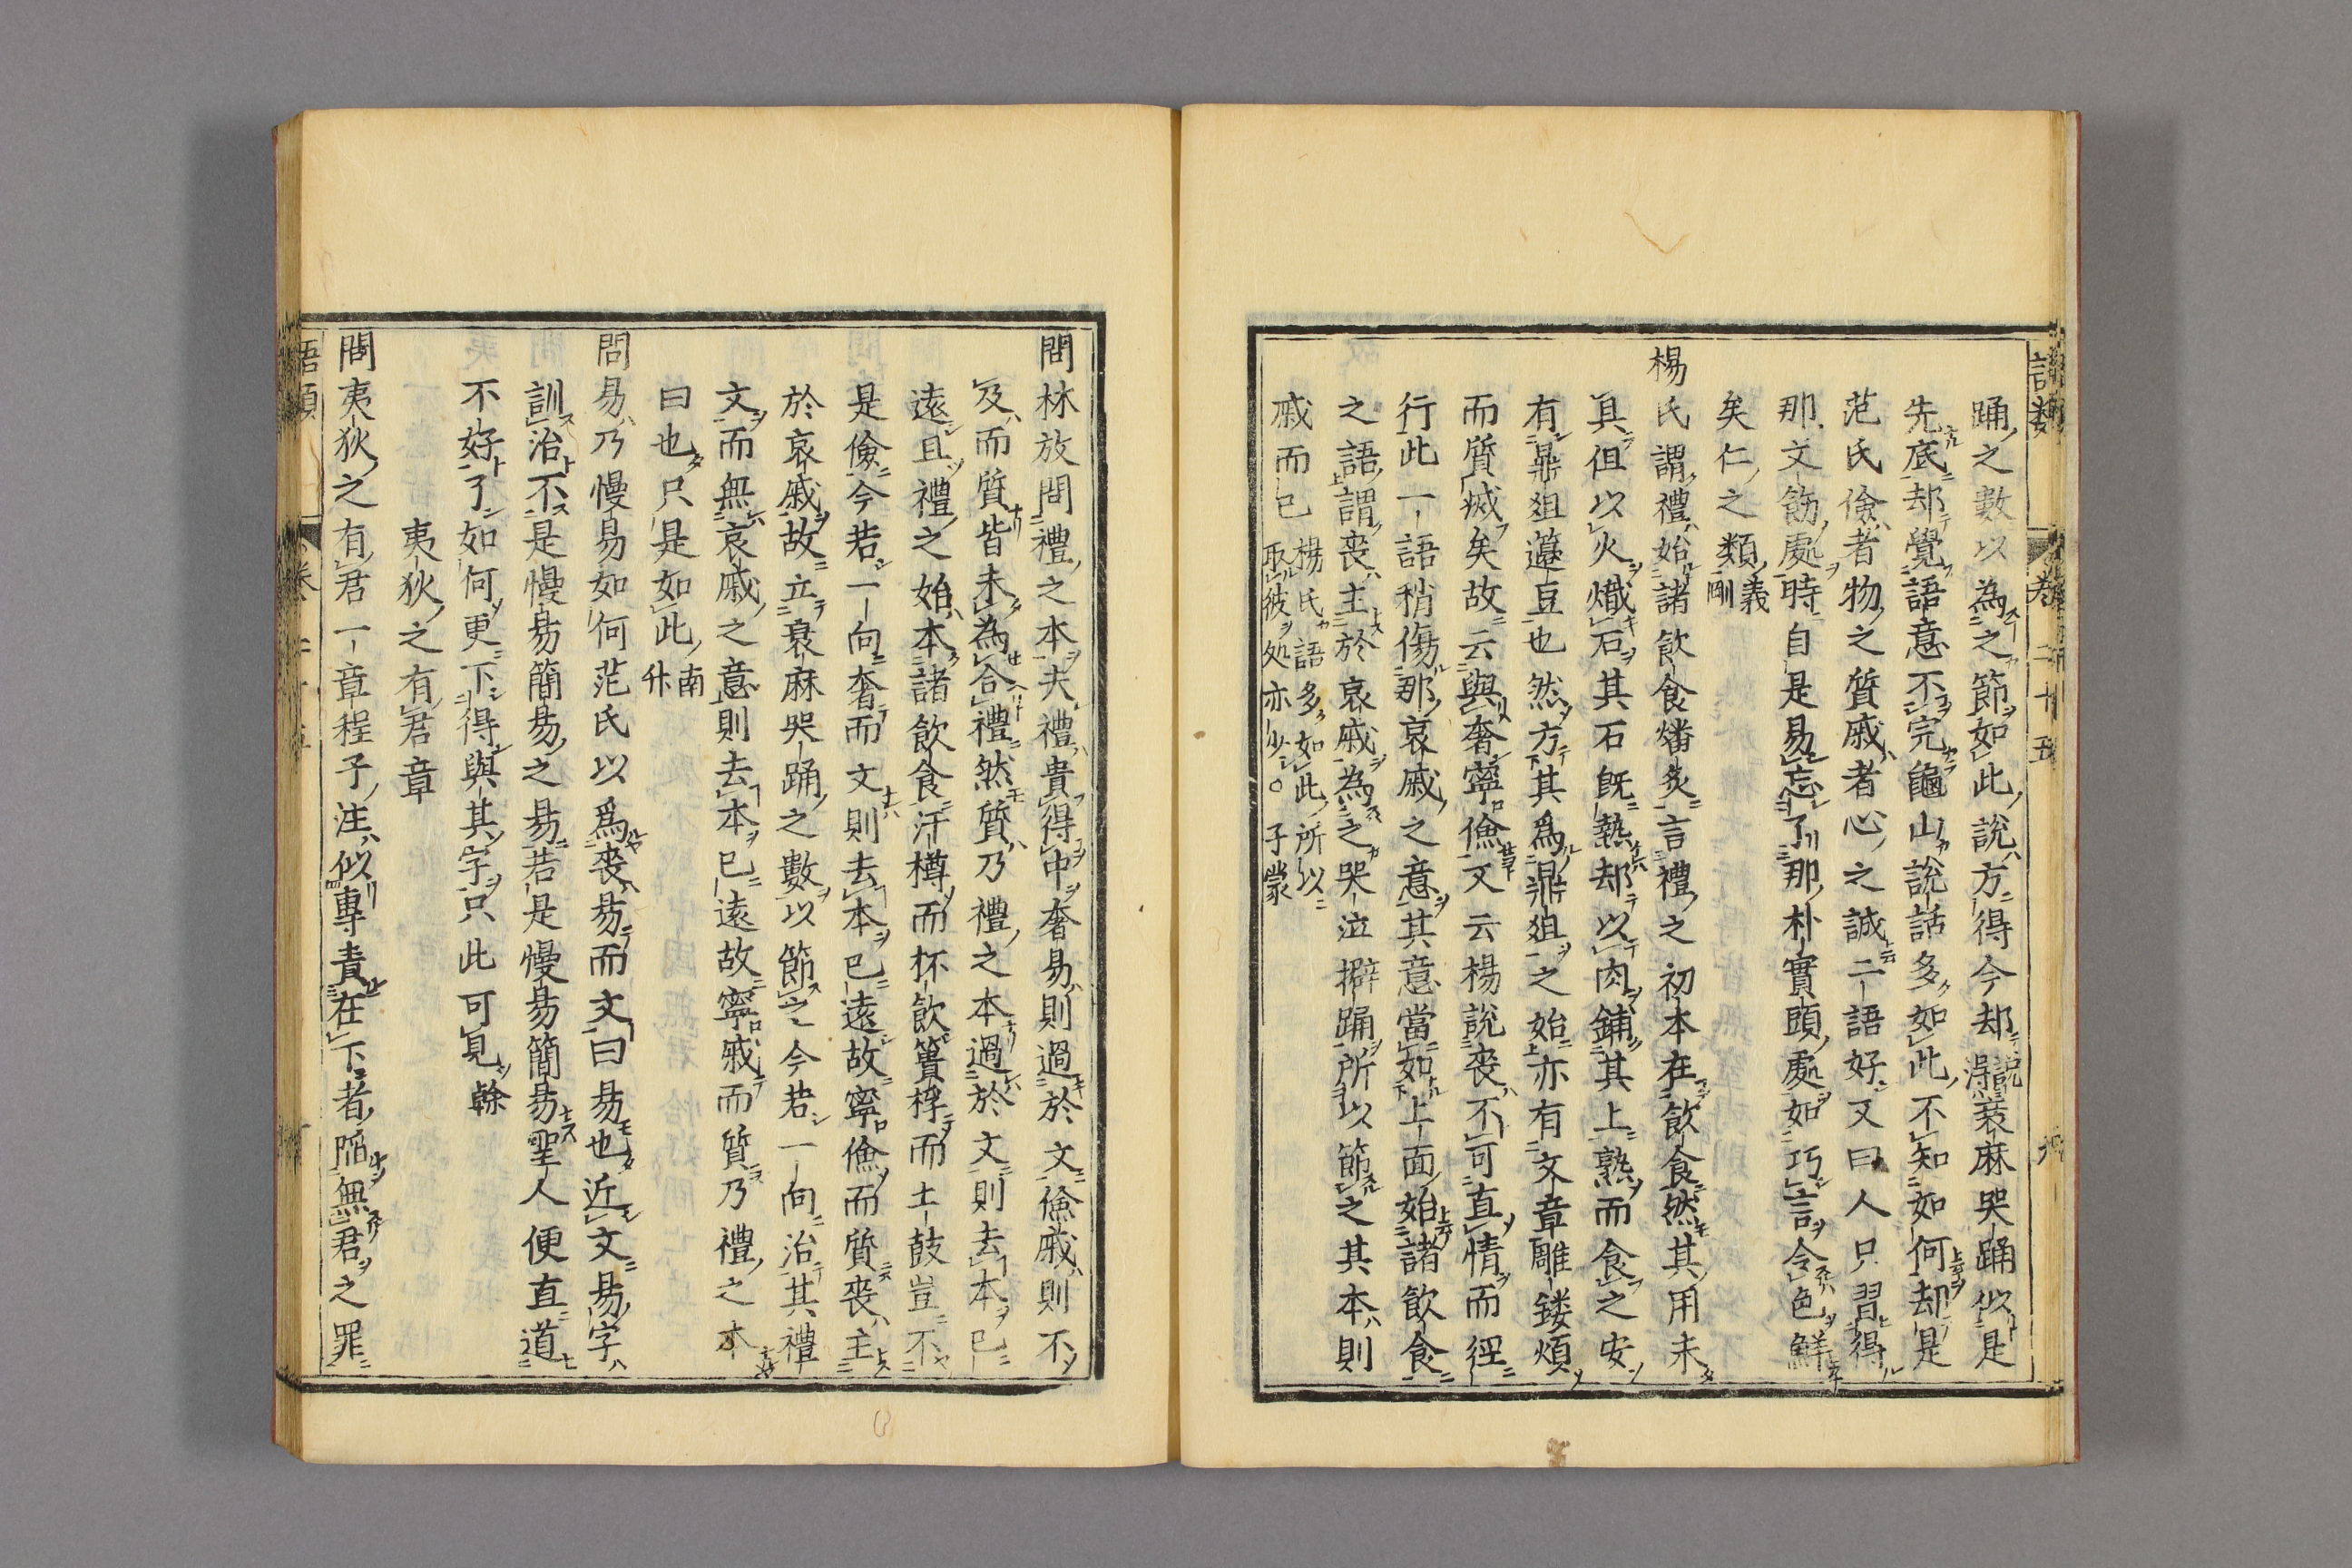 踊之數以為之節如此說方得今却說得衰麻哭踊似是
先底却覺語意不完龜山說話多如此不知如何却是
范氏儉者物之質戚者心之誠二語好又曰人只習得
那文飾處時自是易忘了那朴實頭處如巧言令色鮮
矣仁之類義剛
楊氏謂禮始諸飲食燔炙言禮之初本在飲食然其用未
具但以火熾石其石既熱却以肉鋪其上熟而食之安
有鼎俎籩豆也然方其爲鼎俎之始亦有文章雕鏤煩
而質滅矣故云與奢寧儉又云楊說喪不可直情而徑
行此一語稍傷那哀戚之意其意當如上面始諸飲食
之語謂喪主於哀戚為之哭泣擗踊所以節之其本則
戚而已楊氏語多如此所以
取彼処亦少○子蒙
問林放問禮之本夫禮貴得中奢易則過於文儉戚則不
及而質皆未為合禮然質乃禮之本過於文則去本已
遠且禮之始本諸飲食汙樽而抔飲簣桴而土鼓豈不
是儉今若一向奢而文則去本已遠故寧儉而質喪主
於哀戚故立衰麻哭踊之數以節之今若一向治其禮
文而無哀戚之意則去本已遠故寧戚而質乃禮之本
曰也只是如此南升
問易乃慢易如何范氏以爲喪易而文曰易也近文易字
訓治不是慢易簡易之易若是慢易簡易聖人便直道
不好了如何更下得與其字只此可見榦
夷狄之有君章
問夷狄之有君一章程子注似專責在下者陷無君之罪
語類 卷二十五 九